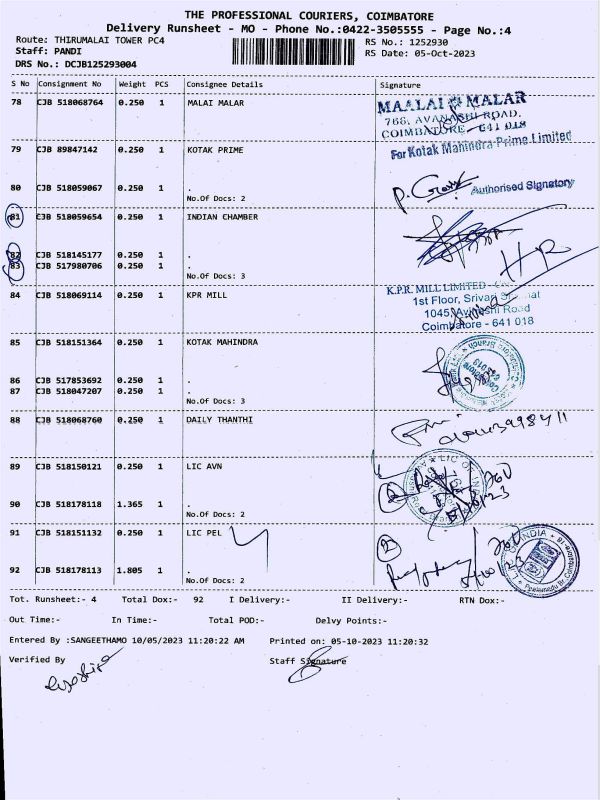 THE PROFESSIONAL COURIERS, COIMBATORE
Delivery Runsheet - MO - Phone No.:0422-3505555 - Page No.:4
Route: THIRUMALAI TOWER PC4
RS No.: 1252930
Staff: PANDI
RS Date: 05-Oct-2023
DRS No.: DCJB125293004
S No Consignment No Weight PCS Consignee Details Signature
78 CJB 518068764 0.250 1 MALAI MALAR
MAALAI MALAR
766, AVANASHI ROAD,
COIMBATORE - 641 018
79 CJB 89847142 0.250 1 KOTAK PRIME
For Kotak Mahindra Prime Limited
80 CJB 518059067 0.250 1 .
Authorised Signatory
No.Of Docs: 2
81 CJB 518059654 0.250 1 INDIAN CHAMBER
82 CJB 518145177 0.250 1 .
83 CJB 517980706 0.250 1 .
No.Of Docs: 3
84 CJB 518069114 0.250 1 KPR MILL
K.P.R. MILL LIMITED
1st Floor,
1045, Avinashi Road
Coimbatore - 641 018
85 CJB 518151364 0.250 1 KOTAK MAHINDRA
86 CJB 517853692 0.250 1 .
87 CJB 518047207 0.250 1 .
No.Of Docs: 3
88 CJB 518068760 0.250 1 DAILY THANTHI
89 CJB 518150121 0.250 1 LIC AVN
90 CJB 518178118 1.365 1 .
No.Of Docs: 2
91 CJB 518151132 0.250 1 LIC PEL
92 CJB 518178113 1.805 1 .
No.Of Docs: 2
Tot. Runsheet:- 4 Total Dox:- 92 I Delivery:- II Delivery:- RTN Dox:-
Out Time:- In Time:- Total POD:- Delvy Points:-
Entered By :SANGEETHAMO 10/05/2023 11:20:22 AM Printed on: 05-10-2023 11:20:32
Verified By Staff Signature